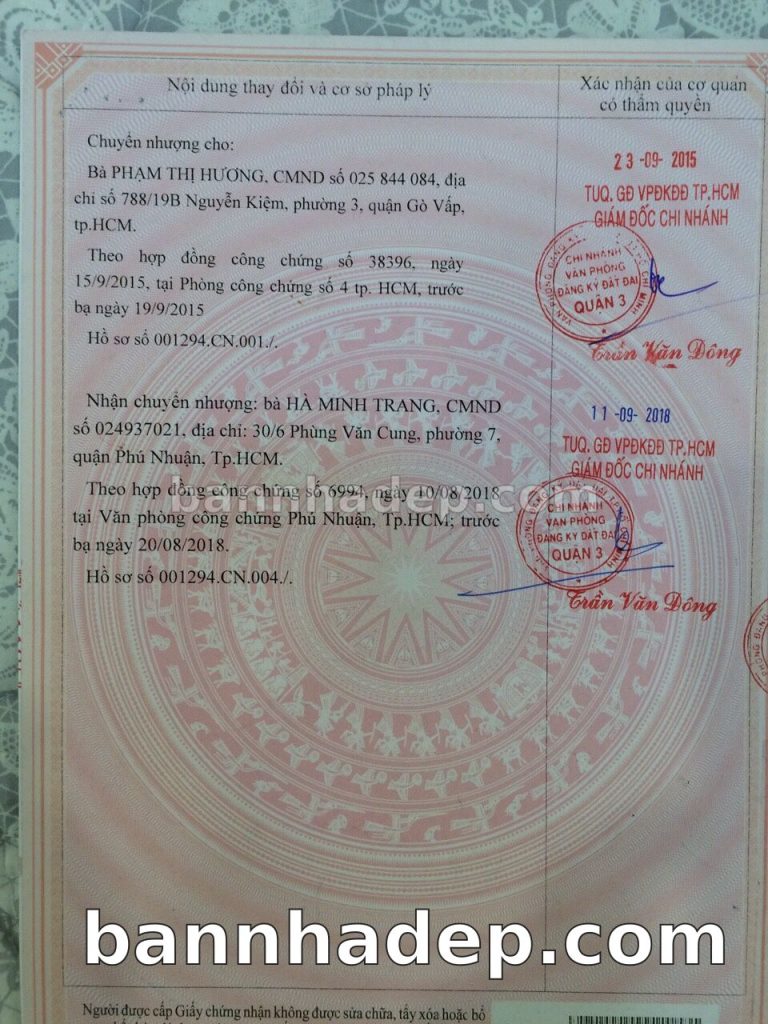 Nội dung thay đổi và cơ sở pháp lý
Xác nhận của cơ quan
có thẩm quyền
Chuyển nhượng cho:
Bà PHẠM THỊ HƯƠNG, CMND số 025 844 084, địa
chỉ số 788/19B Nguyễn Kiệm, phường 3, quận Gò Vấp,
tp.HCM.
Theo hợp đồng công chứng số 38396, ngày
15/9/2015, tại Phòng công chứng số 4 tp. HCM, trước
bạ ngày 19/9/2015
Hồ sơ số 001294.CN.001./.
23-09-2015
TUQ. GĐ VPĐKĐĐ TP.HCM
GIÁM ĐỐC CHI NHÁNH
CHI NHÁNH
VĂN PHÒNG
ĐĂNG KÝ ĐẤT ĐAI
QUẬN 3
Trần Văn Đông
Nhận chuyển nhượng: bà HÀ MINH TRANG, CMND
số 024937021, địa chỉ: 30/6 Phùng Văn Cung, phường 7,
quận Phú Nhuận, Tp.HCM.
Theo hợp đồng công chứng số 6994, ngày 10/08/2018
tại Văn phòng công chứng Phú Nhuận, Tp.HCM; trước
bạ ngày 20/08/2018.
Hồ sơ số 001294.CN.004./.
11-09-2018
TUQ. GĐ VPĐKĐĐ TP.HCM
GIÁM ĐỐC CHI NHÁNH
CHI NHÁNH
VĂN PHÒNG
ĐĂNG KÝ ĐẤT ĐAI
QUẬN 3
Trần Văn Đông
bannhadep.com
bannhadep.com
Người được cấp Giấy chứng nhận không được sửa chữa, tẩy xóa hoặc bổ